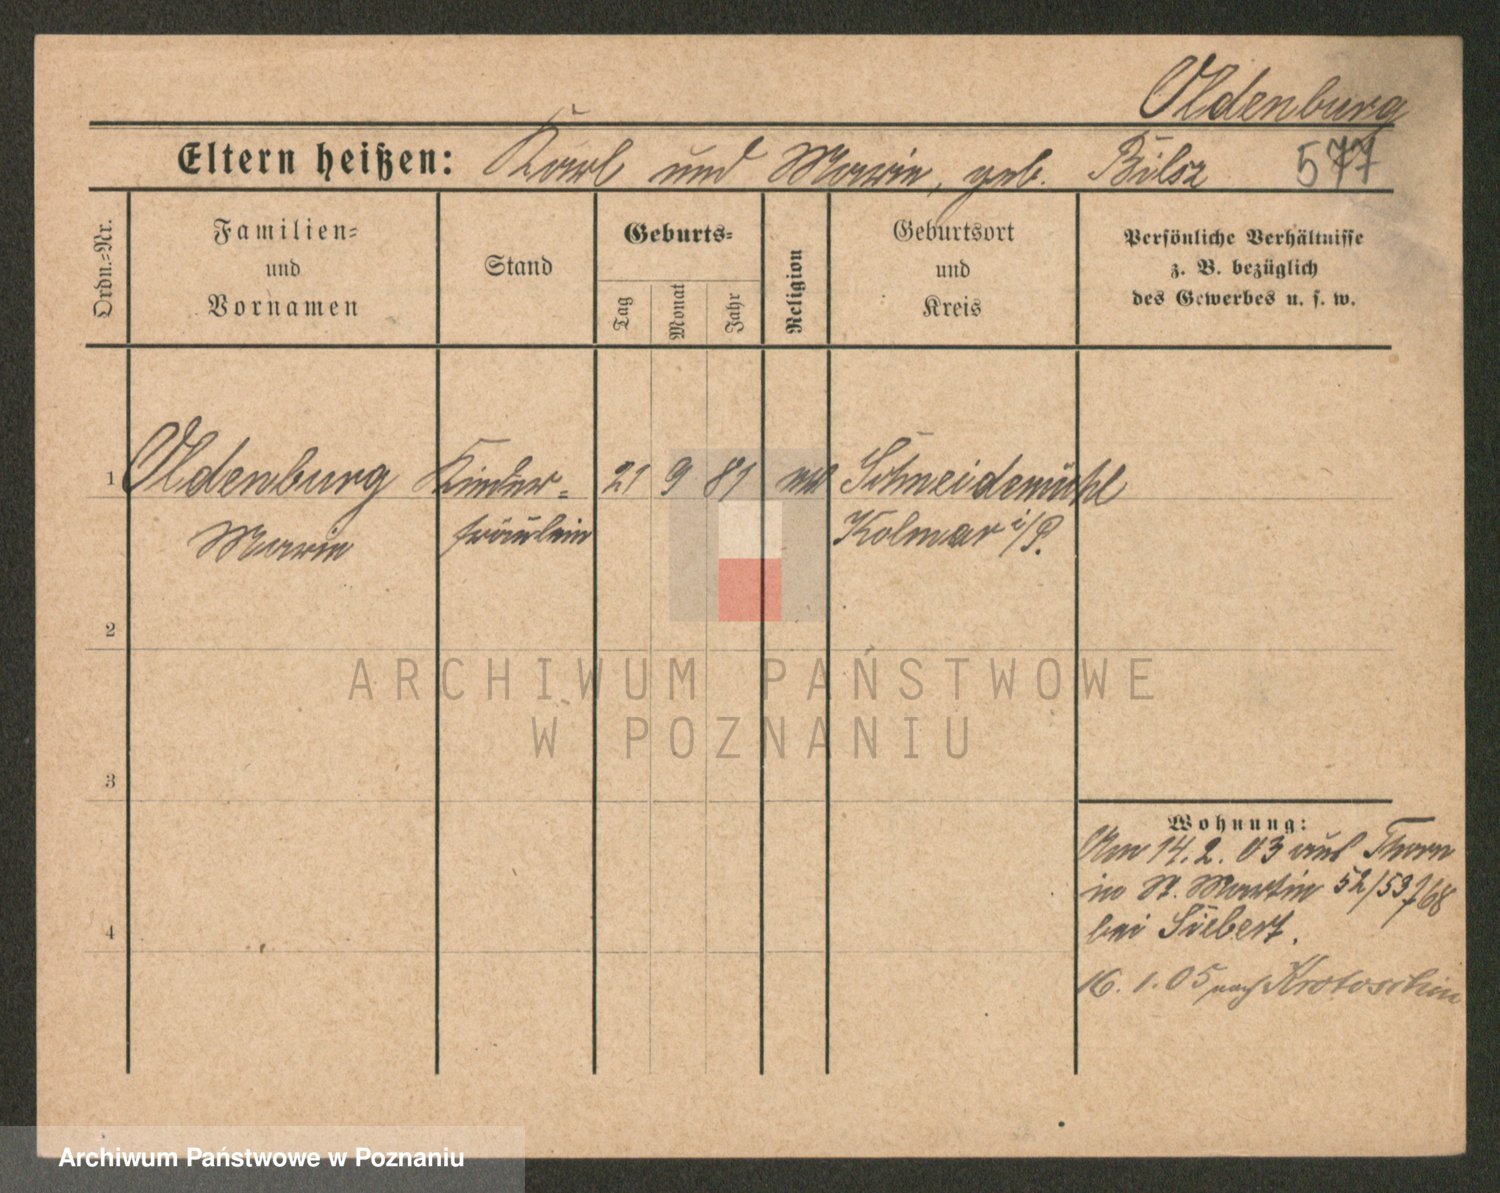 Oldenburg
Eltern heißen: Karl und Marie, geb. Bilsz 577
Ordn.-Nr.
Familien-
und
Vornamen
Stand
Geburts-
Tag
Monat
Jahr
Religion
Geburtsort
und
Kreis
Persönliche Verhältnisse
z. B. bezüglich
des Gewerbes u. s. w.
1 Oldenburg Kinder- 21 9 81 Schneidemühl
Marie fräulein Kolmar i/P.
2
3
4
ARCHIWUM PAŃSTWOWE
W POZNANIU
Wohnung:
Am 14.2.03 aus Thorn
in St. Martin 52/53
bei Siebert.
16.1.05 nach Krotoschin
Archiwum Państwowe w Poznaniu